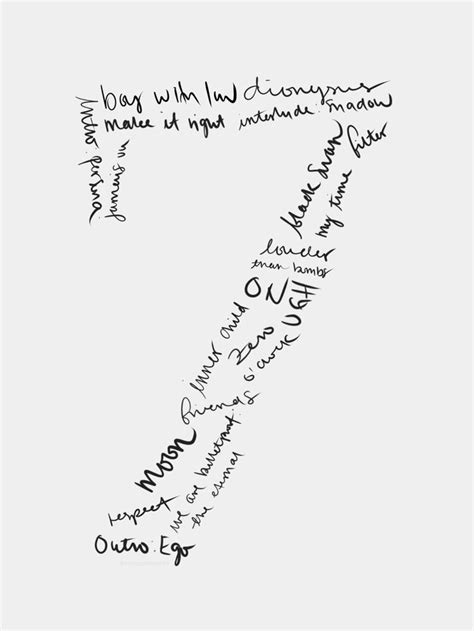 Intro: persona
boy with luv
make it right
jamais vu
dionysus
interlude: shadow
black swan
filter
my time
louder
than bombs
ON
UGH!
zero
o'clock
inner child
friends
moon
respect
we are bulletproof:
the eternal
Outro: Ego